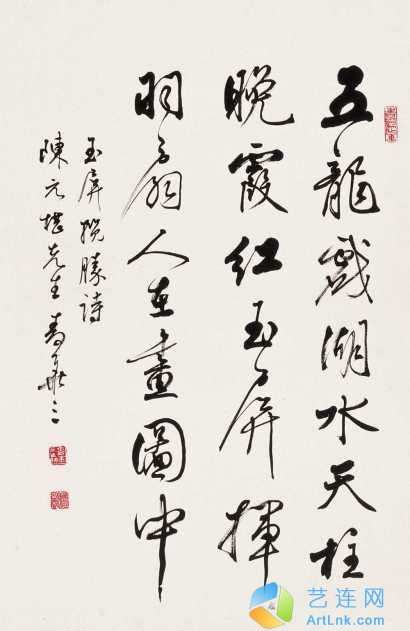 五龍戲湖水天柱
晚霞紅玉屏揮
羽扇人在畫圖中
玉屏攬勝詩
陳元先生
艺连网
ArtLnk.com